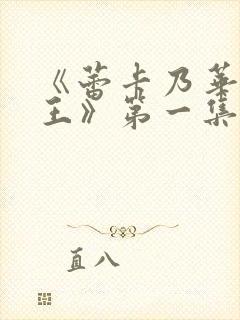 《蕾卡乃華
王》第一集
直八